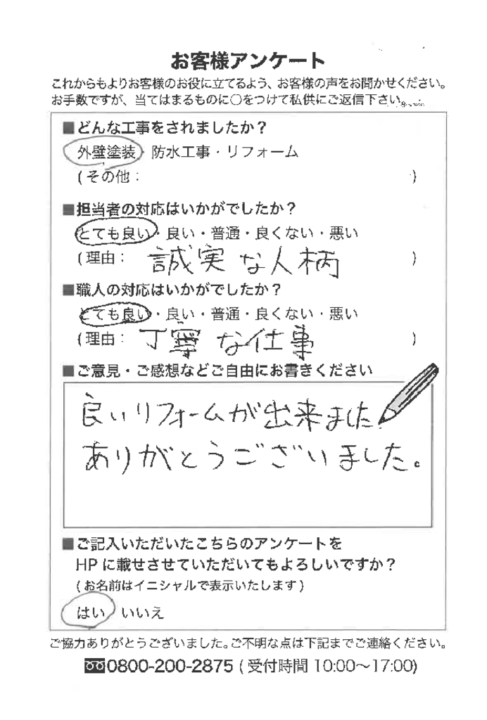 お客様アンケート
これからもよりお客様のお役に立てるよう、お客様の声をお聞かせください。
お手数ですが、当てはまるものに○をつけて私供にご返信下さい。
■どんな工事をされましたか？
外壁塗装・防水工事・リフォーム
(その他： )
■担当者の対応はいかがでしたか？
とても良い・良い・普通・良くない・悪い
(理由： 誠実な人柄 )
■職人の対応はいかがでしたか？
とても良い・良い・普通・良くない・悪い
(理由： 丁寧な仕事 )
■ご意見・ご感想などご自由にお書きください
良いリフォームが出来ました。
ありがとうございました。
■ご記入いただいたこちらのアンケートを
HPに載せさせていただいてもよろしいですか？
(お名前はイニシャルで表示いたします)
はい・いいえ
ご協力ありがとうございました。ご不明な点は下記までご連絡ください。
0800-200-2875 (受付時間 10:00～17:00)